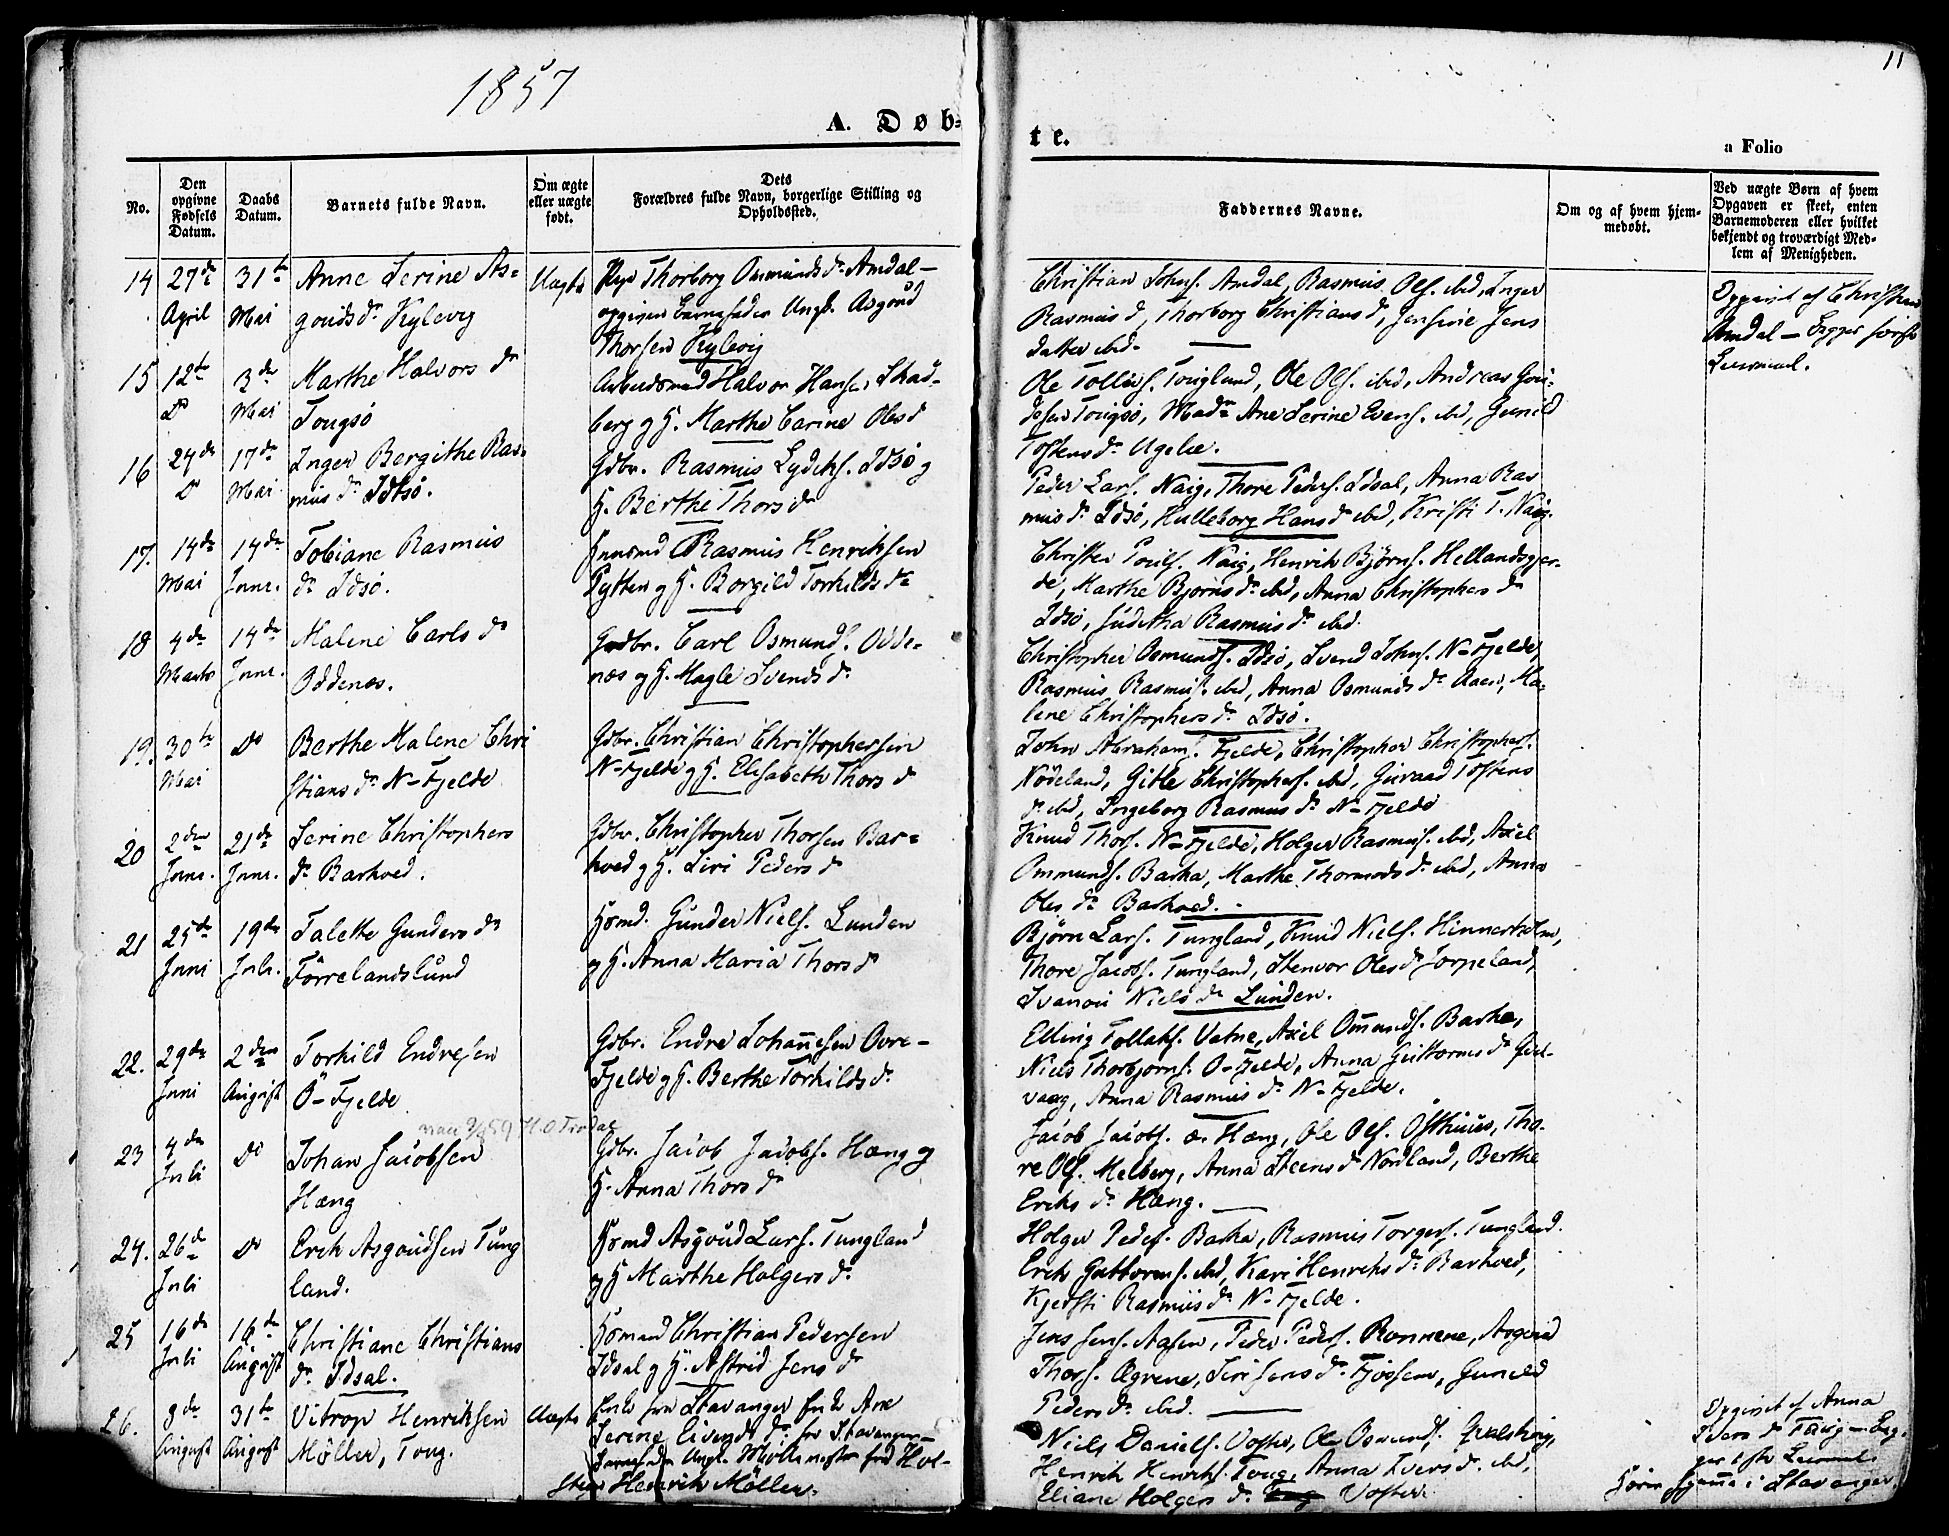 1857
11
A. Døb=
te.
a Folio
No.
Den
opgivne
Fødsels
Datum.
Daabs
Datum.
Barnets fulde Navn.
Om ægte
eller uægte
født.
Dets
Forældres fulde Navn, borgerlige Stilling og
Opholdssted.
Faddernes Navne.
Om og af hvem hjem-
medøbt.
Ved uægte Børn af hvem
Opgaven er skeet, enten
Barnemoderen eller hvilket
bekjendt og troværdigt Med-
lem af Menigheden.
14 27de April 31te Mai
Anne Serine As=
gouds dr Kylevig
Uægte
Thorborg Osmunds dr Amdal -
opgiven Barnefader Ungk. Asgoud
Thorsen Kylevig
Christian Johns. Amdal, Rasmus Ols. ibid, Inger
Rasmus d, Thorborg Christians d, Jensine Jens
datter ibid.
Opgivet af Christian
Amdal
15 12te Do 3de Mai
Marthe Halvors dr
Tougsø
Arbeidsmand Halvor Hansen Skad-
berg og H. Marthe Carine Olesd
Ole Tollevs. Tougland, Ole Ols. ibid, Andreas Gou-
desen Tougsø, Mad. Ane Serine Evens. ibid, Gunild
Tostens dr
16 24de Do 17de Mai
Inger Bergithe Ras-
mus dr Idsø.
Gdbr. Rasmus Lydeks. Idsø og
H. Berthe Thors dr
Peder Lars. Naig, Thore Peders. Idsal, Anna Ras
mus dr Idsø, Hulleborg Hans d ibid, Kristi T. Naig.
17. 14de Mai 14de Juni.
Tobiane Rasmus
dr Idsø.
Rasmus Henriksen
Pytten og H. Borgild Torkilds dr
Christen Pouls. Naig, Henrik Björns. Hellandsgjer-
de, Marthe Bjorns dr ibid, Anna Christophers dr
Idsø, Juditha Rasmus dr ibid.
18 4de Marts 14de Juni.
Malene Carls dr
Oddenæs.
Gadbr. Carl Osmunds. Odde-
næs og H. Magle Svends dr
Christopher Osmunds. Idsø, Svend Johns. N-Fjelde,
Rasmus Rasmus. ibid, Anna Osmunds dr Aaen, Ma-
lene Christophers dr Idsø.
19. 30te Mai Do
Berthe Malene Chri
stians dr N-Fjelde
Gdbr. Christian Christophersen
N-Fjelde og H. Elisabeth Thors d
John Abrahams. Fjelde, Christopher Christophers.
Nödeland, Gitle Christophers. ibid, Tostens
dr ibid, Ingeborg Rasmus dr N-Fjelde
20 2den Juni. 21de Juni.
Serine Christophers
dr Barkved.
Gdbr. Christopher Thorsen Bar=
kved og H. Siri Peders d
Knud Thors. N-Fjelde, Holger Rasmus. ibid, Axel
Ommunds. Barka, Marthe Thormods dr ibid, Anna
Oles dr Barkved.
21 25de Juni 19de Juli.
Talette Gunders dr
Förrelandslund
Husmd. Gunder Niels. Lunden
og H. Anna Maria Thors d
Björn Lars. Tungland, Knud Niels. Hinnerholm,
Thore Jacobs. Tungland, Stenvor Oles dr Jorpeland,
Niels dr Lunden.
22. 29de Juni 2den August
Torkild Endresen
Ö-Fjelde
Gdbr. Endre Johannesen Övre-
Fjelde og H. Berthe Torkilds dr
Elling Tollaks. Vatne, Axel Omunds. Barka,
Niels Thorbjorns. O-Fjelde, Anna Guttorms dr
vaag, Anna Rasmus dr N-Fjelde.
23 4de Juli Do
Johan Jacobsen
Hæng
Gdbr. Jacob Jacobs. Hæng og
H. Anna Thors dr
Jacob Jacobs. Hæng, Ole Ols. Østhuus, Tho-
re Ols. Melberg, Anna Steens dr Nordland, Berthe
Eriks dr Hæng.
24. 26de Juli Do
Erik Asgoudsen Tung
land.
Husmd Asgoud Lars. Tungland
og H Marthe Holgers dr
Holger Peders. Barka, Rasmus Torgers. Tungland.
Erik Guttorms. ibid, Kari Henriks dr Barkved,
Kjersti Rasmus dr N-Fjelde.
25 16de Juli 16de August
Christiane Christians
dr Idsal.
Husmand Christian Pedersen
Idsal og H. Astrid Jens dr
Jens Jens. Aasen, Peder Peders. Ronnene, Asgoud
Thors. Øgrene, Siri Jens dr Fjøssen, Gunild
Peders dr ibid.
26. 8de August 31te August
Vitrop Henriksen
Möller, Toug.
Uægte
Enke fra Stavanger Ane
Serine fra Stavanger
Barnefader Ungk. fra Hol-
sten Henrik Möller.
Niels Daniels. Voster, Ole Osmunds.
Henrik Henriks. Toug, Anna Ivers dr ibid,
Eliane Holgers dr Voster.
Opgivet af Anna
Ivers dr
hjemme i Stavanger.